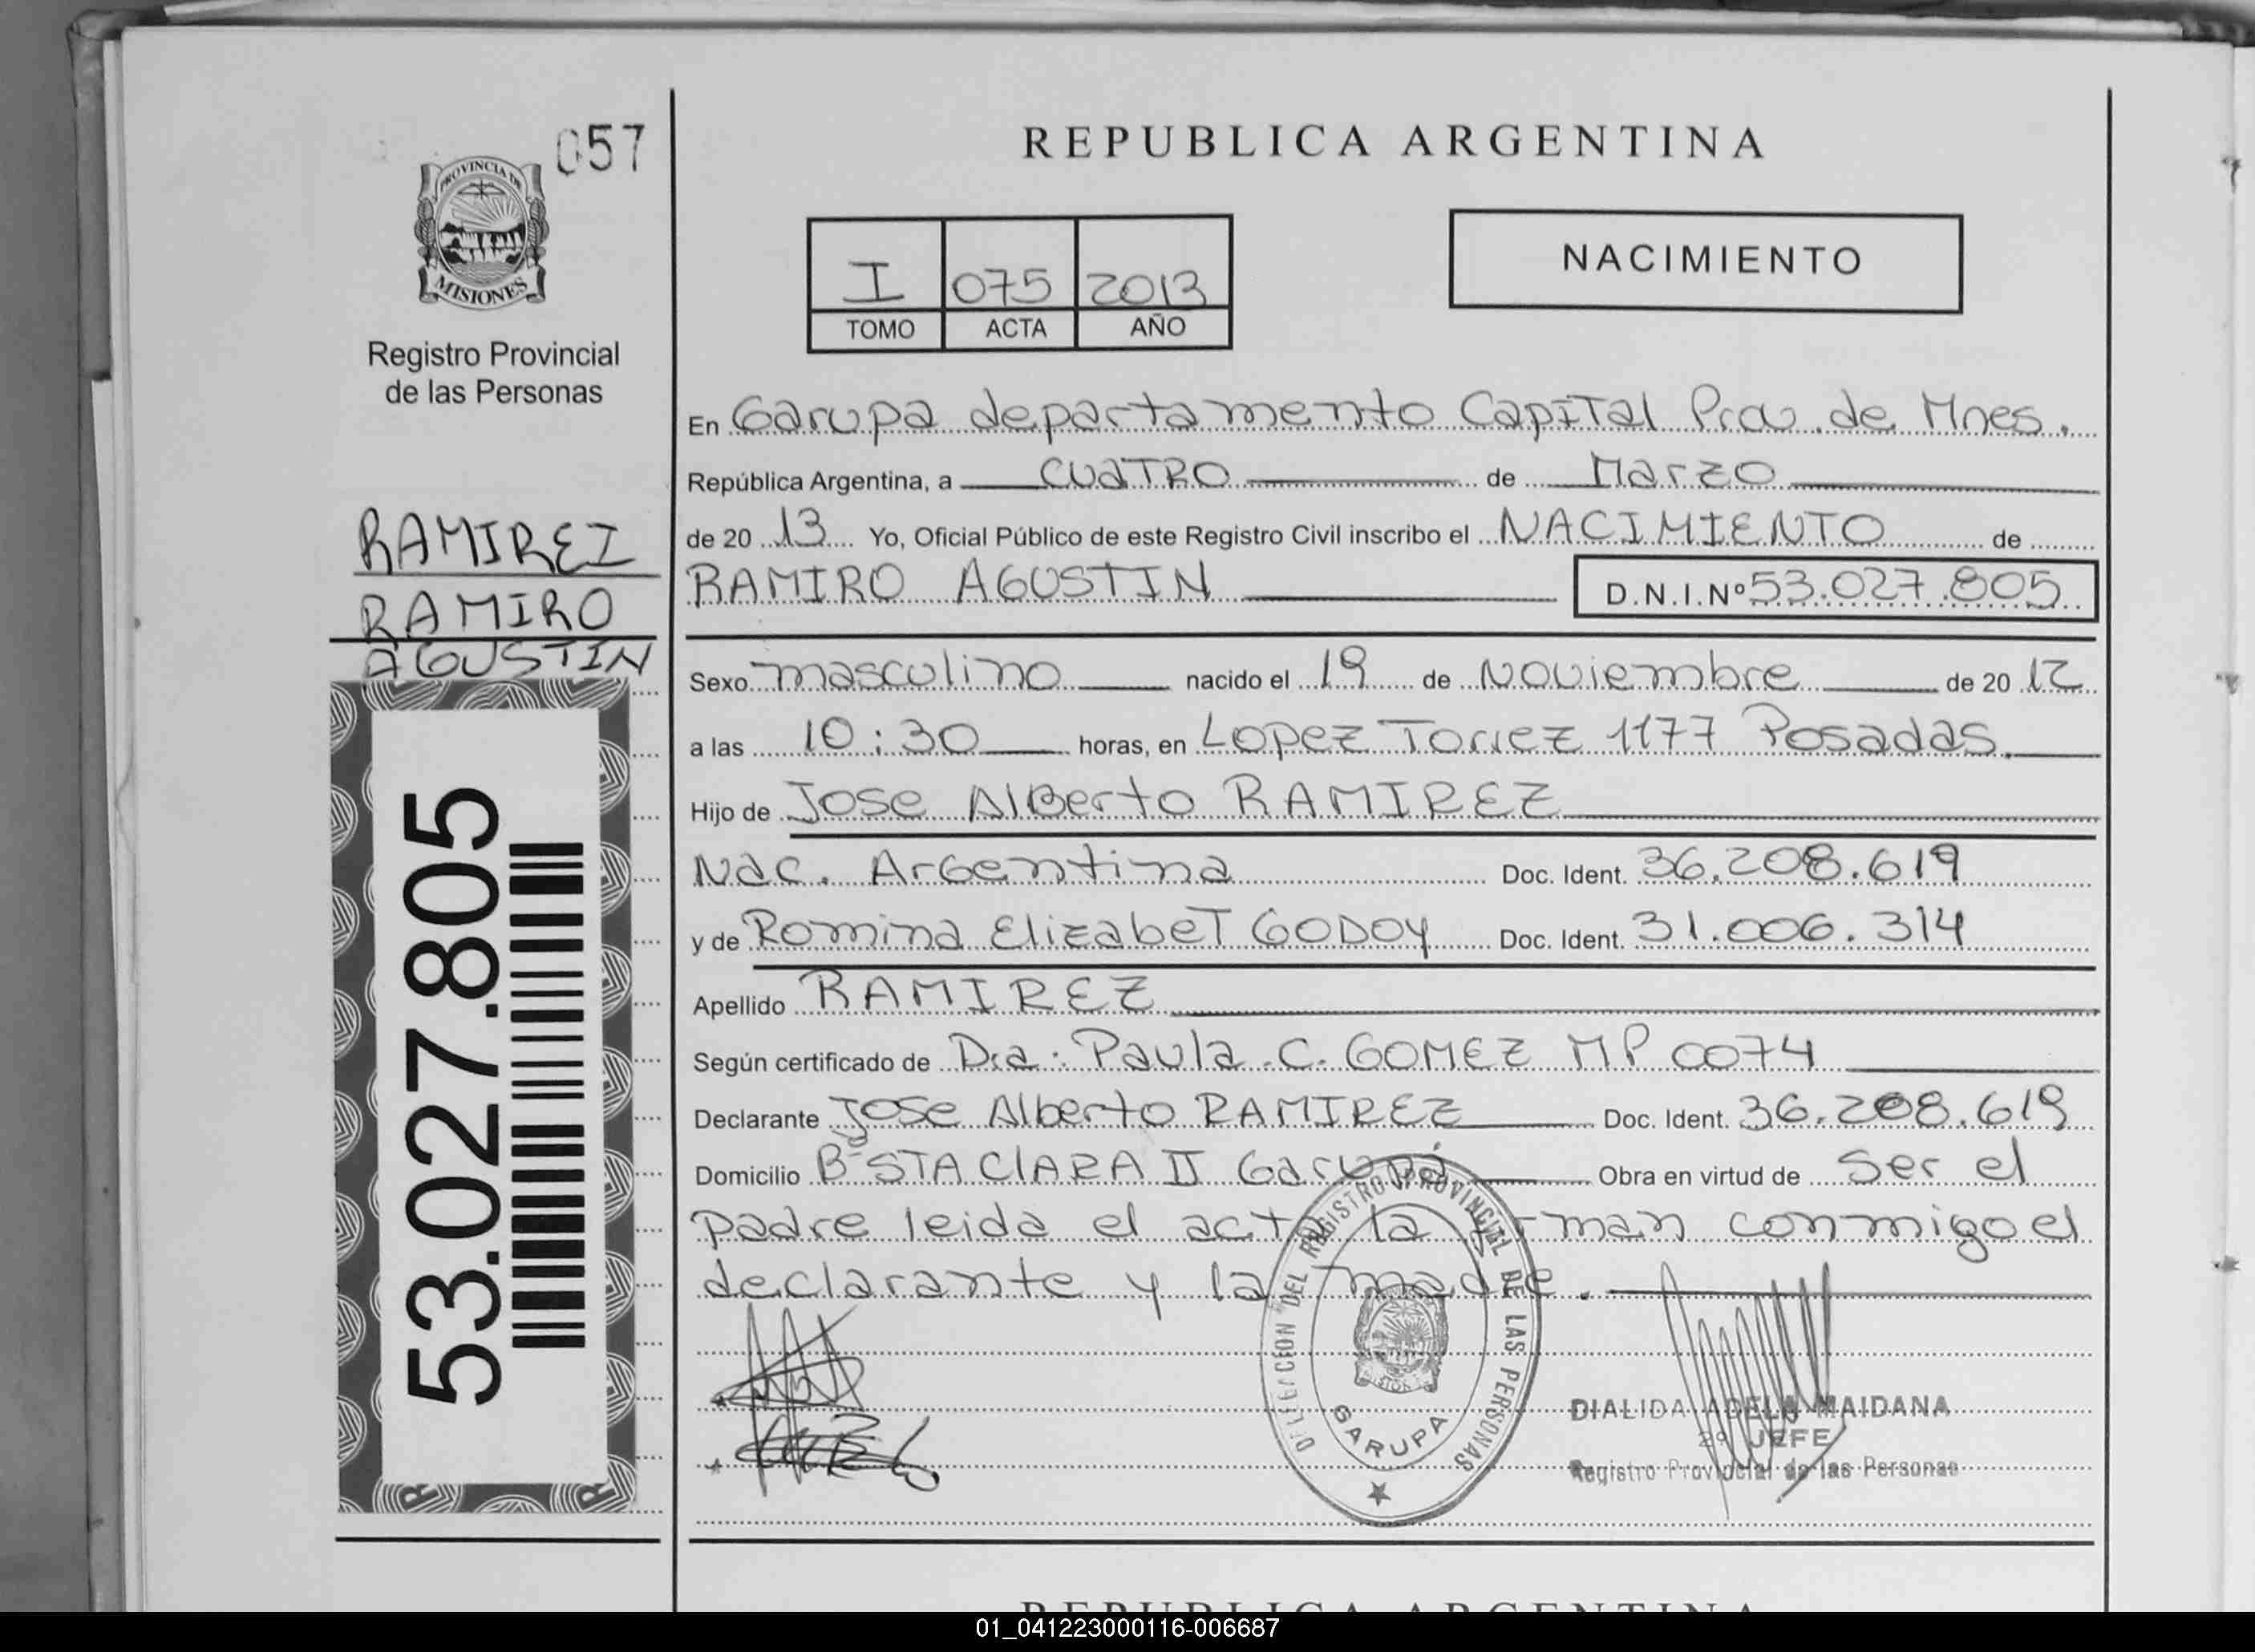 057
PROVINCIA DE
MISIONES
Registro Provincial
de las Personas
RAMIREZ
RAMIRO
AGUSTIN
53.027.805
REPUBLICA ARGENTINA
I 075 2013
TOMO ACTA AÑO
NACIMIENTO
En Garupa departamento Capital Prov. de Mnes.
República Argentina, a cuatro de Marzo
de 20 13 Yo, Oficial Público de este Registro Civil inscribo el NACIMIENTO de
RAMIRO AGUSTIN D.N.I.Nº 53.027.805
Sexo masculino nacido el 19 de Noviembre de 20 12
a las 10:30 horas, en Lopez Torrez 1177 Posadas.
Hijo de Jose Alberto RAMIREZ
Nac. Argentina Doc. Ident. 36.208.619
y de Romina Elizabet GODOY Doc. Ident. 31.006.314
Apellido RAMIREZ
Según certificado de Dra: Paula C. GOMEZ MP 0074
Declarante Jose Alberto RAMIREZ Doc. Ident. 36.208.619
Domicilio Bº STA CLARA II Garupá Obra en virtud de ser el
padre leida el acta la firman conmigo el
declarante y la madre.
DELEGACION DEL REGISTRO PROVINCIAL DE LAS PERSONAS
GARUPA
DIALIDA ADELA MAIDANA
2º JEFE
Registro Provincial de las Personas
REPUBLICA ARGENTINA
01_041223000116-006687